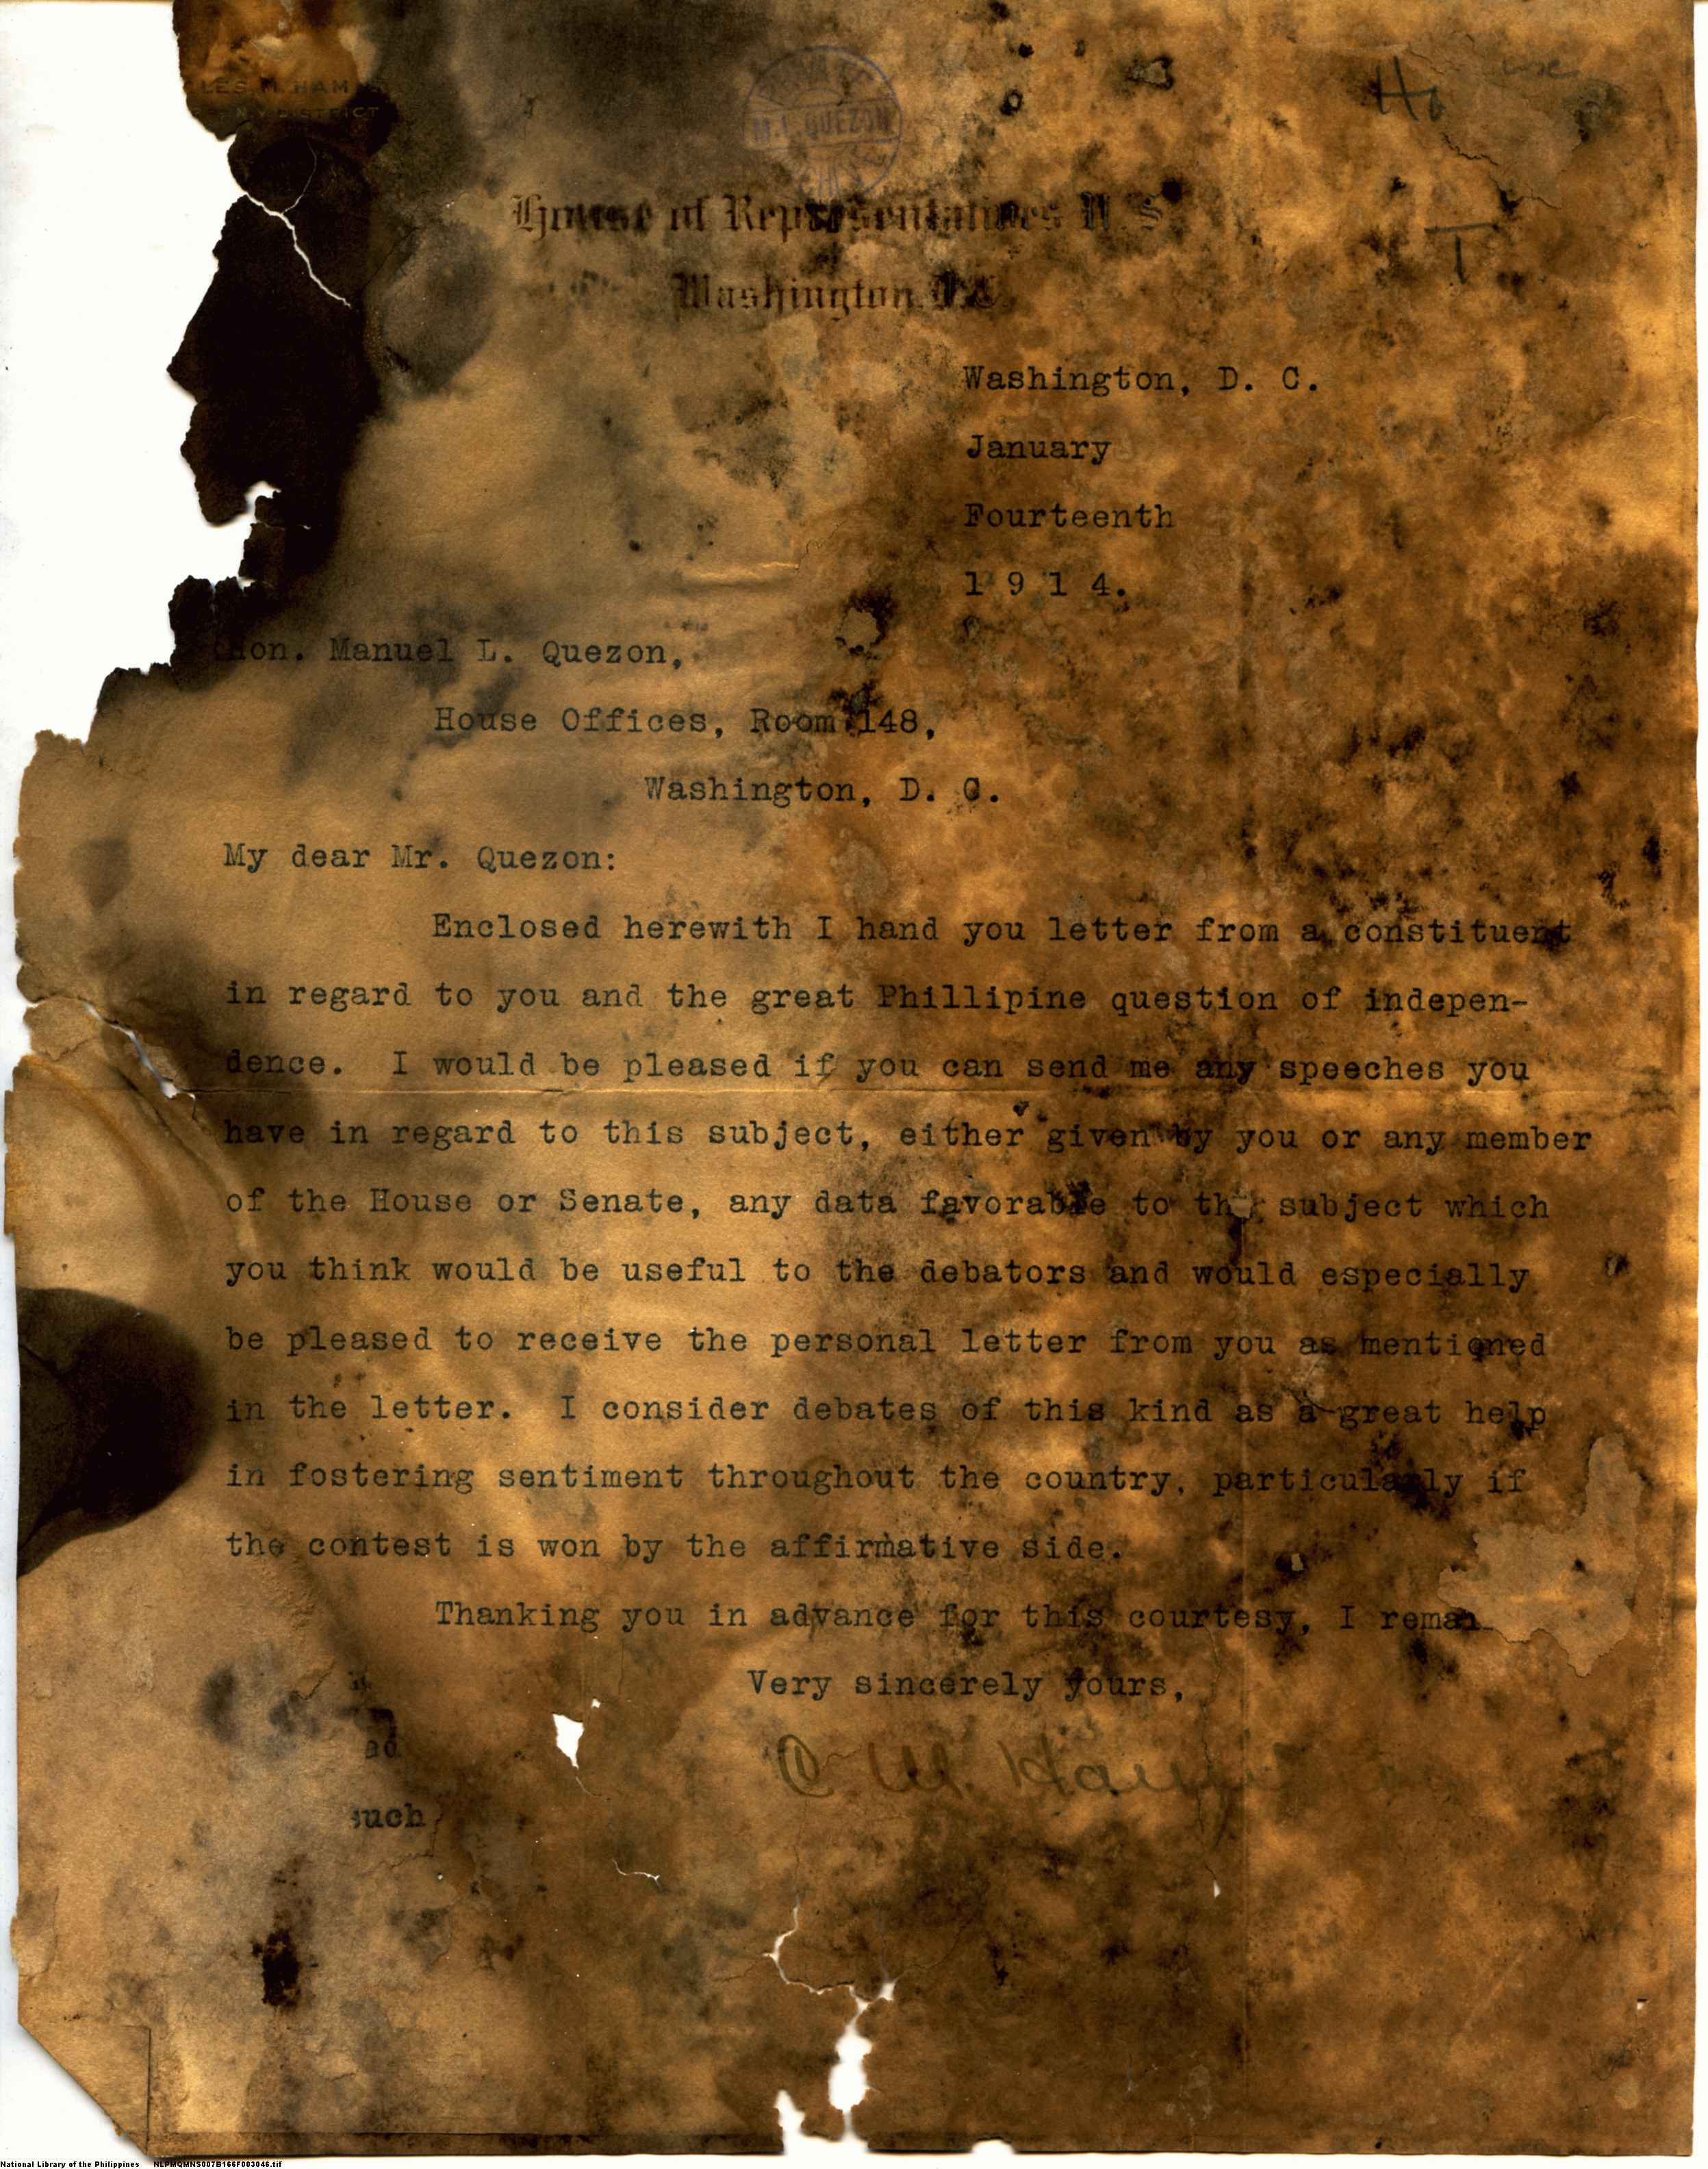 LES M. HAM
DISTRICT
M. L. QUEZON
House of Representatives U. S.
Washington, D. C.
Washington, D. C.
January
Fourteenth
1 9 1 4.
Hon. Manuel L. Quezon,
House Offices, Room 148,
Washington, D. C.
My dear Mr. Quezon:
Enclosed herewith I hand you letter from a constituent
in regard to you and the great Phillipine question of indepen-
dence. I would be pleased if you can send me any speeches you
have in regard to this subject, either given by you or any member
of the House or Senate, any data favorable to the subject which
you think would be useful to the debators and would especially
be pleased to receive the personal letter from you as mentioned
in the letter. I consider debates of this kind as a great help
in fostering sentiment throughout the country, particularly if
the contest is won by the affirmative side.
Thanking you in advance for this courtesy, I remai
Very sincerely yours,
C. M. Ham
such
National Library of the Philippines NLPMQMNS007B166F003046.tif